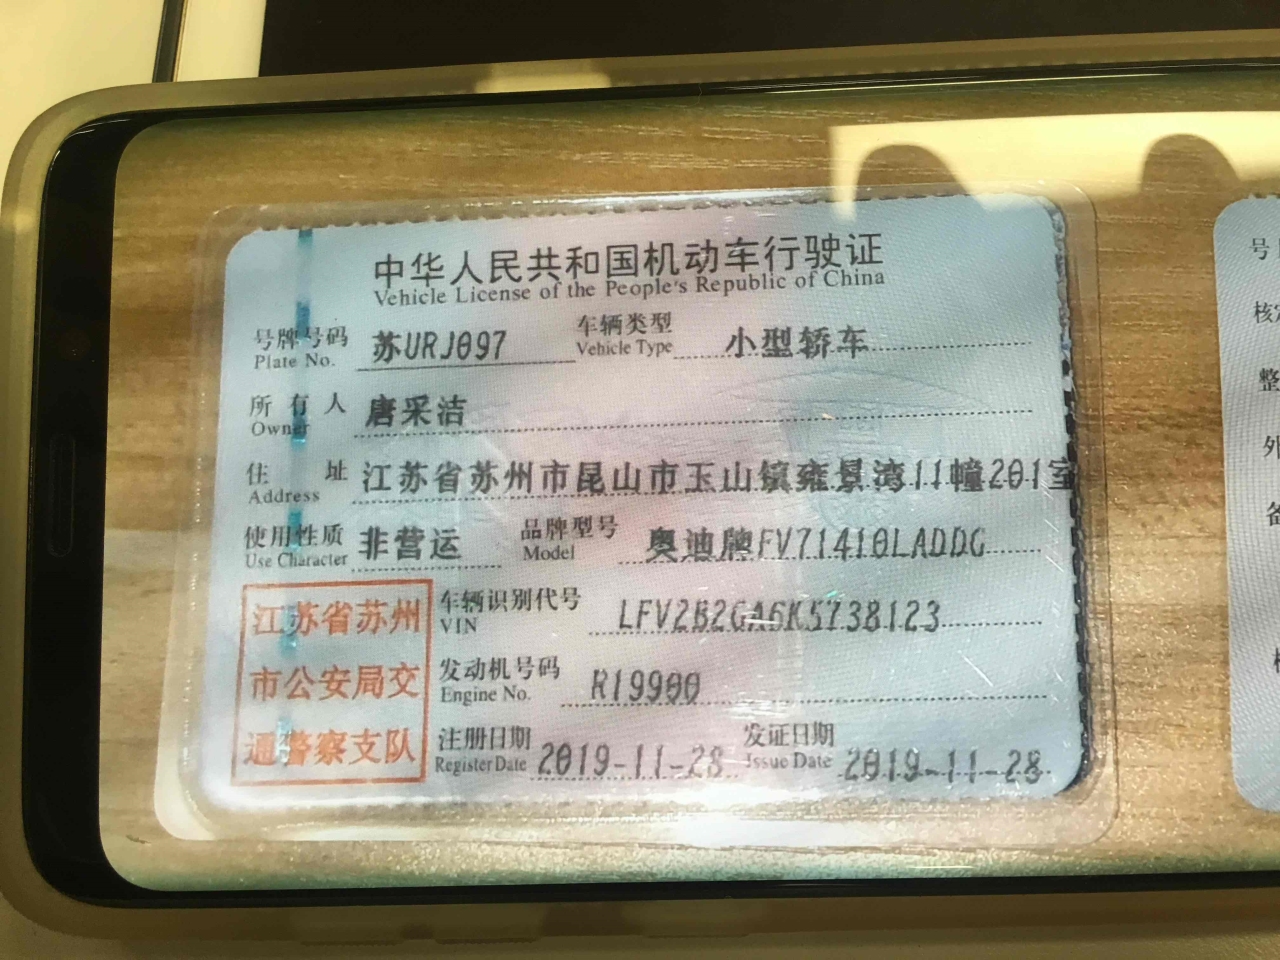 中华人民共和国机动车行驶证
Vehicle License of the People's Republic of China
号牌号码 苏URJ097 车辆类型 小型轿车
Plate No. Vehicle Type
所有人 唐采洁
Owner
住址 江苏省苏州市昆山市玉山镇雍景湾11幢201室
Address
使用性质 非营运 品牌型号 奥迪牌FV71410LADDG
Use Character Model
江苏省苏州
市公安局交
通警察支队
车辆识别代号 LFV2B2GA6K5738123
VIN
发动机号码 R19900
Engine No.
注册日期 2019-11-28 发证日期 2019-11-28
Register Date Issue Date
号
核
整
外